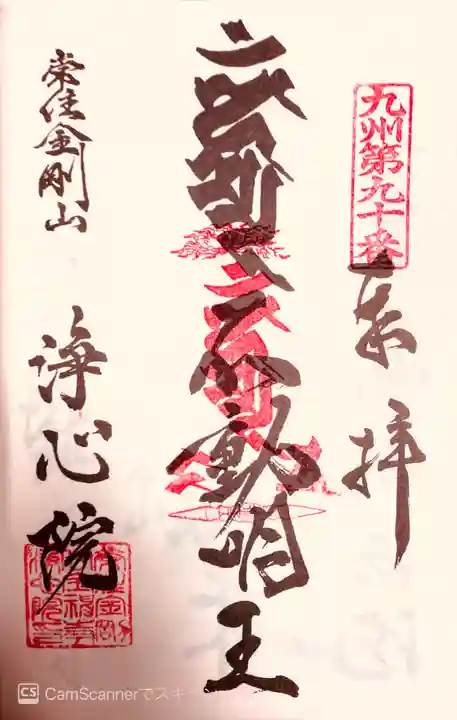 九州第九十番
奉拝
不動明王
常住金剛山
浄心院
CS CamScannerでスキ